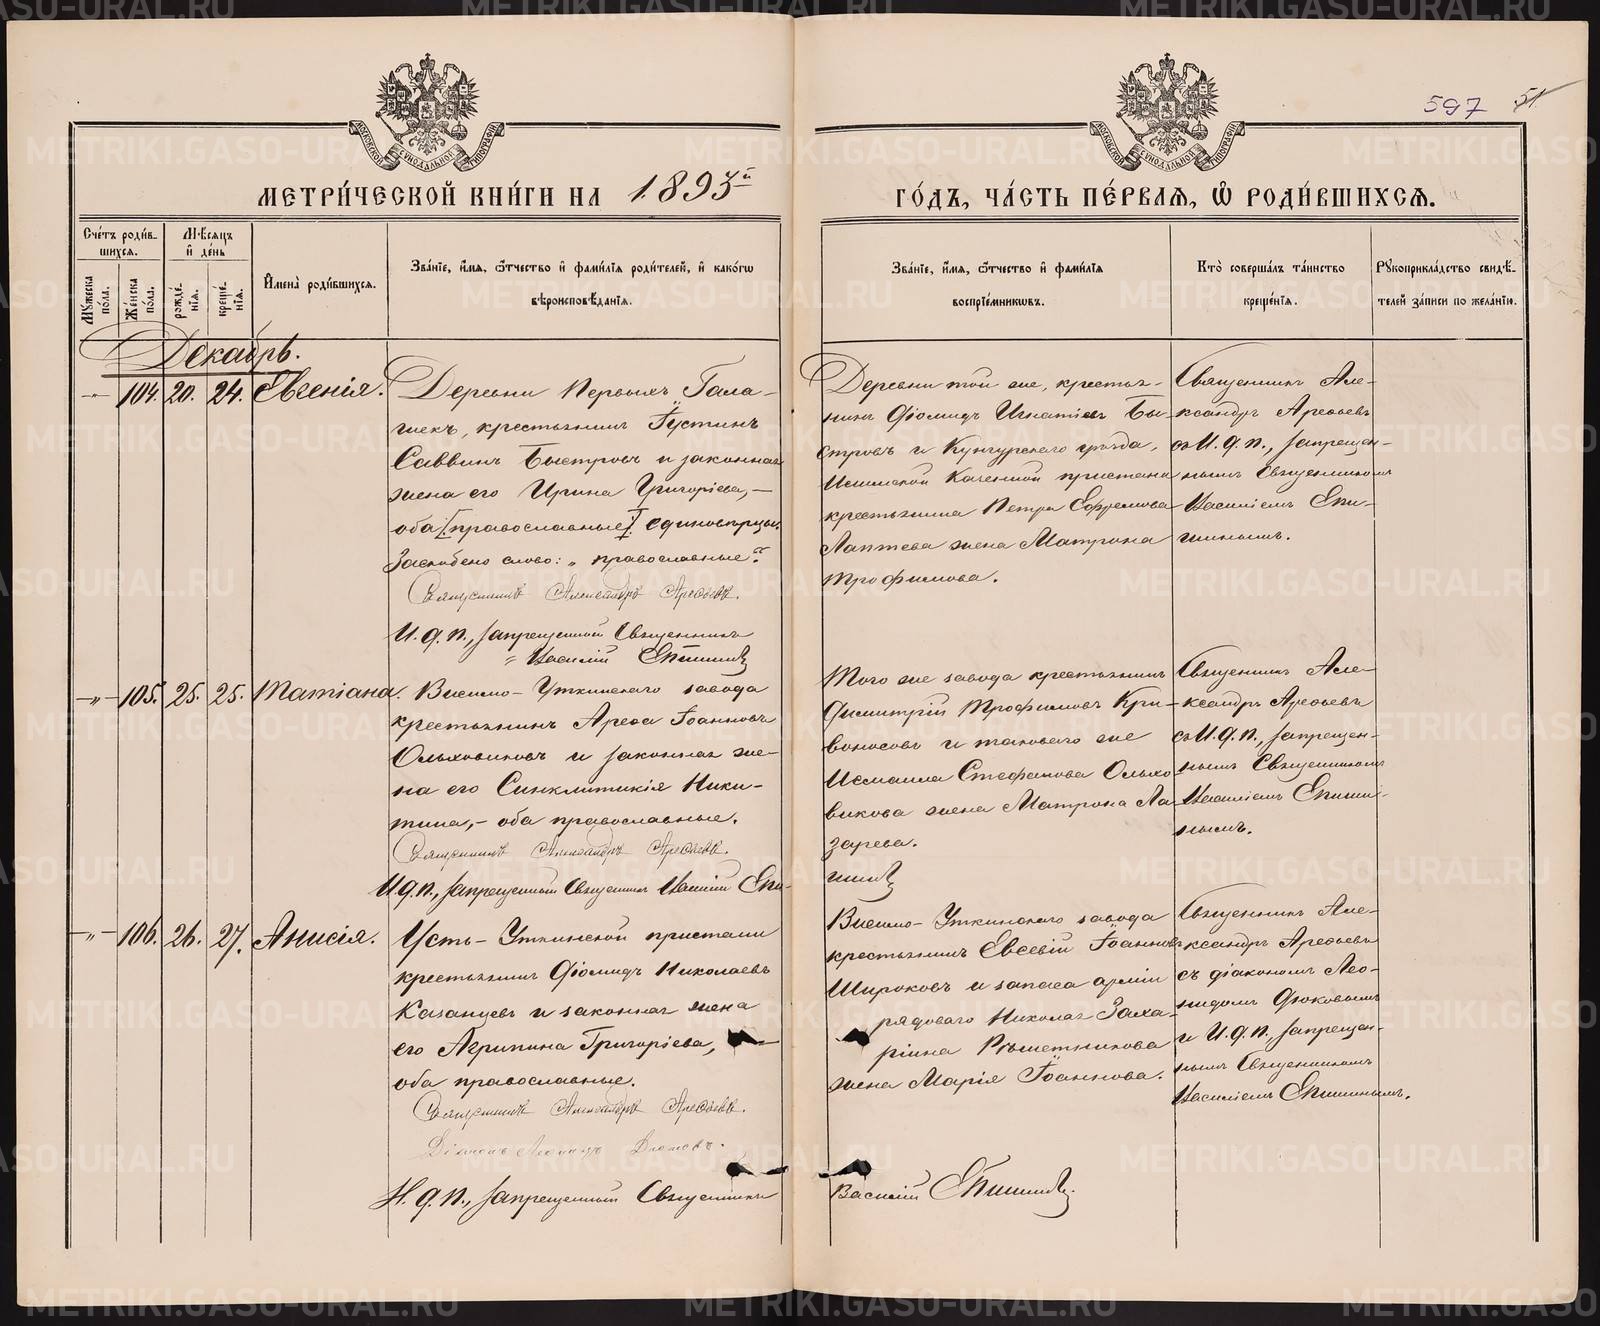 597 51
МОСКОВСКОЙ СѴНОДАЛЬНОЙ ТИПОГРАФІИ
МОСКОВСКОЙ СѴНОДАЛЬНОЙ ТИПОГРАФІИ
МЕТРИ́ЧЕСКОЙ КНИ́ГИ НА 1893й
ГО́ДЪ, ЧА́СТЬ ПЕ́РВАЯ, Ѡ РОДИ́ВШИХСЯ.
Сче́тъ роди́в-
шихся.
Мѣ́сяцъ
и де́нь
Мꙋжеска
по́ла.
Же́нска
по́ла.
рожде́-
нія.
креще́-
нія.
Имена̀ роди́вшихся.
Зва́ніе, и́мя, ѻ́тчество и фами́лія роди́телей, и како́гѡ
вѣроисповѣ́данія.
Зва́ніе, и́мя, ѻ́тчество и фами́лія
воспріе́мникѡвъ.
Кто̀ соверша́лъ та́инство
креще́нія.
Рꙋкоприкла́дство свидѣ́-
телей за́писи по жела́нію.
Декабрь.
-"- 104. 20. 24. Евгенія.
Деревни Первыхъ Гала-
шекъ, крестьянинъ Іустинъ
Саввинъ Быстровъ и законная
жена его Ирина Григоріева,—
оба [православные] единовѣрцы.
Заскоблено слово: „православные“.
Священникъ Александръ Арефьевъ.
И. д. п., запрещенной Священникъ
Василій Епишинъ
Деревни той же, крестья-
нинъ Фіолидъ Игнатіевъ Бы-
стровъ и Кунгурскаго уѣзда,
Илимской Казенной пристани
крестьянина Петра Ефремова
Лаптева жена Матрона
Трофимова.
Священникъ Але-
ксандръ Арефьевъ
съ И. д. п., запрещен-
нымъ Священникомъ
Василіемъ Епи-
шинымъ.
-"- 105. 25. 25. Татіана.
Висимо-Уткинскаго завода
крестьянинъ Арефа Іоанновъ
Ольховиковъ и законная же-
на его Синклитикія Ники-
тина,- оба православные.
Священникъ Александръ Арефьевъ.
И. д. п., запрещенный Священникъ Василій Епи-
Того же завода крестьянинъ
Димитрій Трофимовъ Кри-
воносовъ и таковаго же
Исмаила Стефанова Ольхо-
викова жена Матрона Ла-
зарева.
шинъ
Священникъ Але-
ксандръ Арефьевъ
съ И. д. п., запрещен-
нымъ Священникомъ
Василіемъ Епиши-
нымъ.
-"- 106. 26. 27. Анисія.
Усть-Уткинской пристани
крестьянинъ Фіолидъ Николаевъ
Казанцевъ и законная жена
его Агрипина Григоріева,
оба православные.
Священникъ Александръ Арефьевъ.
Діаконъ Леонидъ Дюковъ.
И. д. п., запрещенный Священникъ
Висимо-Уткинскаго завода
крестьянинъ Евсевій Іоанновъ
Широковъ и запаса арміи
рядоваго Николая Заха-
ріина Рѣшетникова
жена Марія Іоаннова.
Василій Епишинъ.
Священникъ Але-
ксандръ Арефьевъ
съ діакономъ Лео-
нидомъ Дюковымъ
и И. д. п., запрещен-
нымъ Священникомъ
Василіемъ Епишинымъ.
METRIKI.GASO-URAL.RU